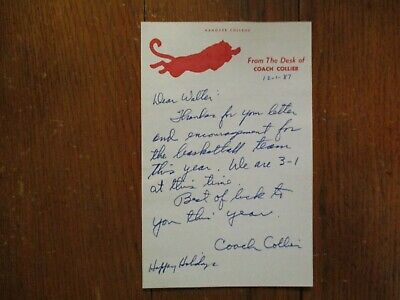 HANOVER COLLEGE
From The Desk of
COACH COLLIER
12-1-87
Dear Walter:
Thanks for your letter
and encouragement for
the basketball team
this year. We are 3-1
at this time.
Best of luck to
you this year.
Coach Collier
Happy Holidays